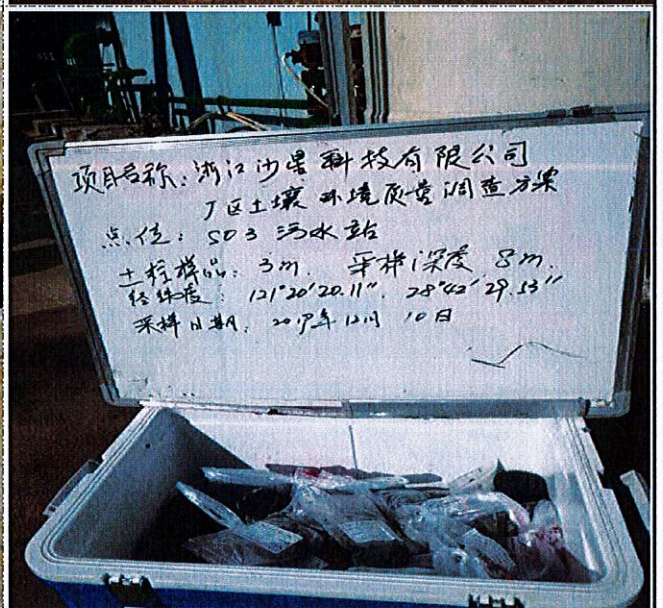 项目名称: 浙江沙星科技有限公司
厂区土壤环境质量调查方案
点位: S03 污水站
土柱样品: 3m. 采样深度 8m.
经纬度: 121°20′20.11″. 28°42′29.53″
采样日期: 2019年12月10日